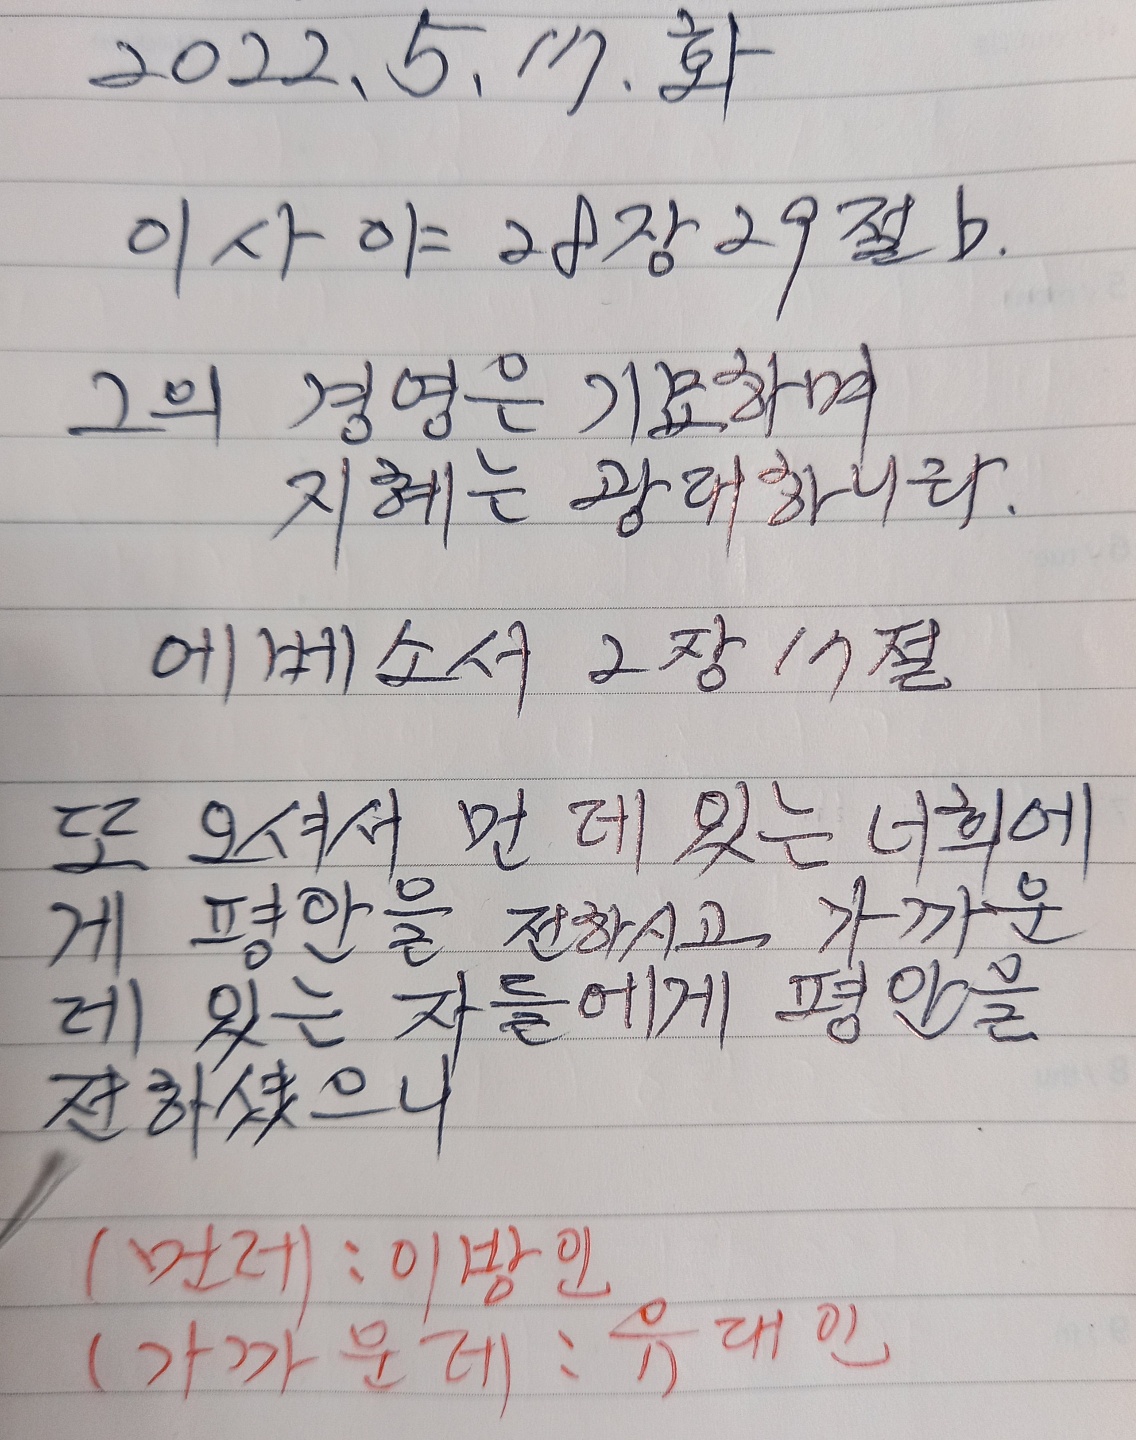 2022. 5. 17. 화
이사야 28장 29절 b.
그의 경영은 기묘하며
지혜는 광대하니라.
에베소서 2장 17절
또 오셔서 먼 데 있는 너희에
게 평안을 전하시고 가까운
데 있는 자들에게 평안을
전하셨으니
(먼데) : 이방인
(가까운데) : 유대인